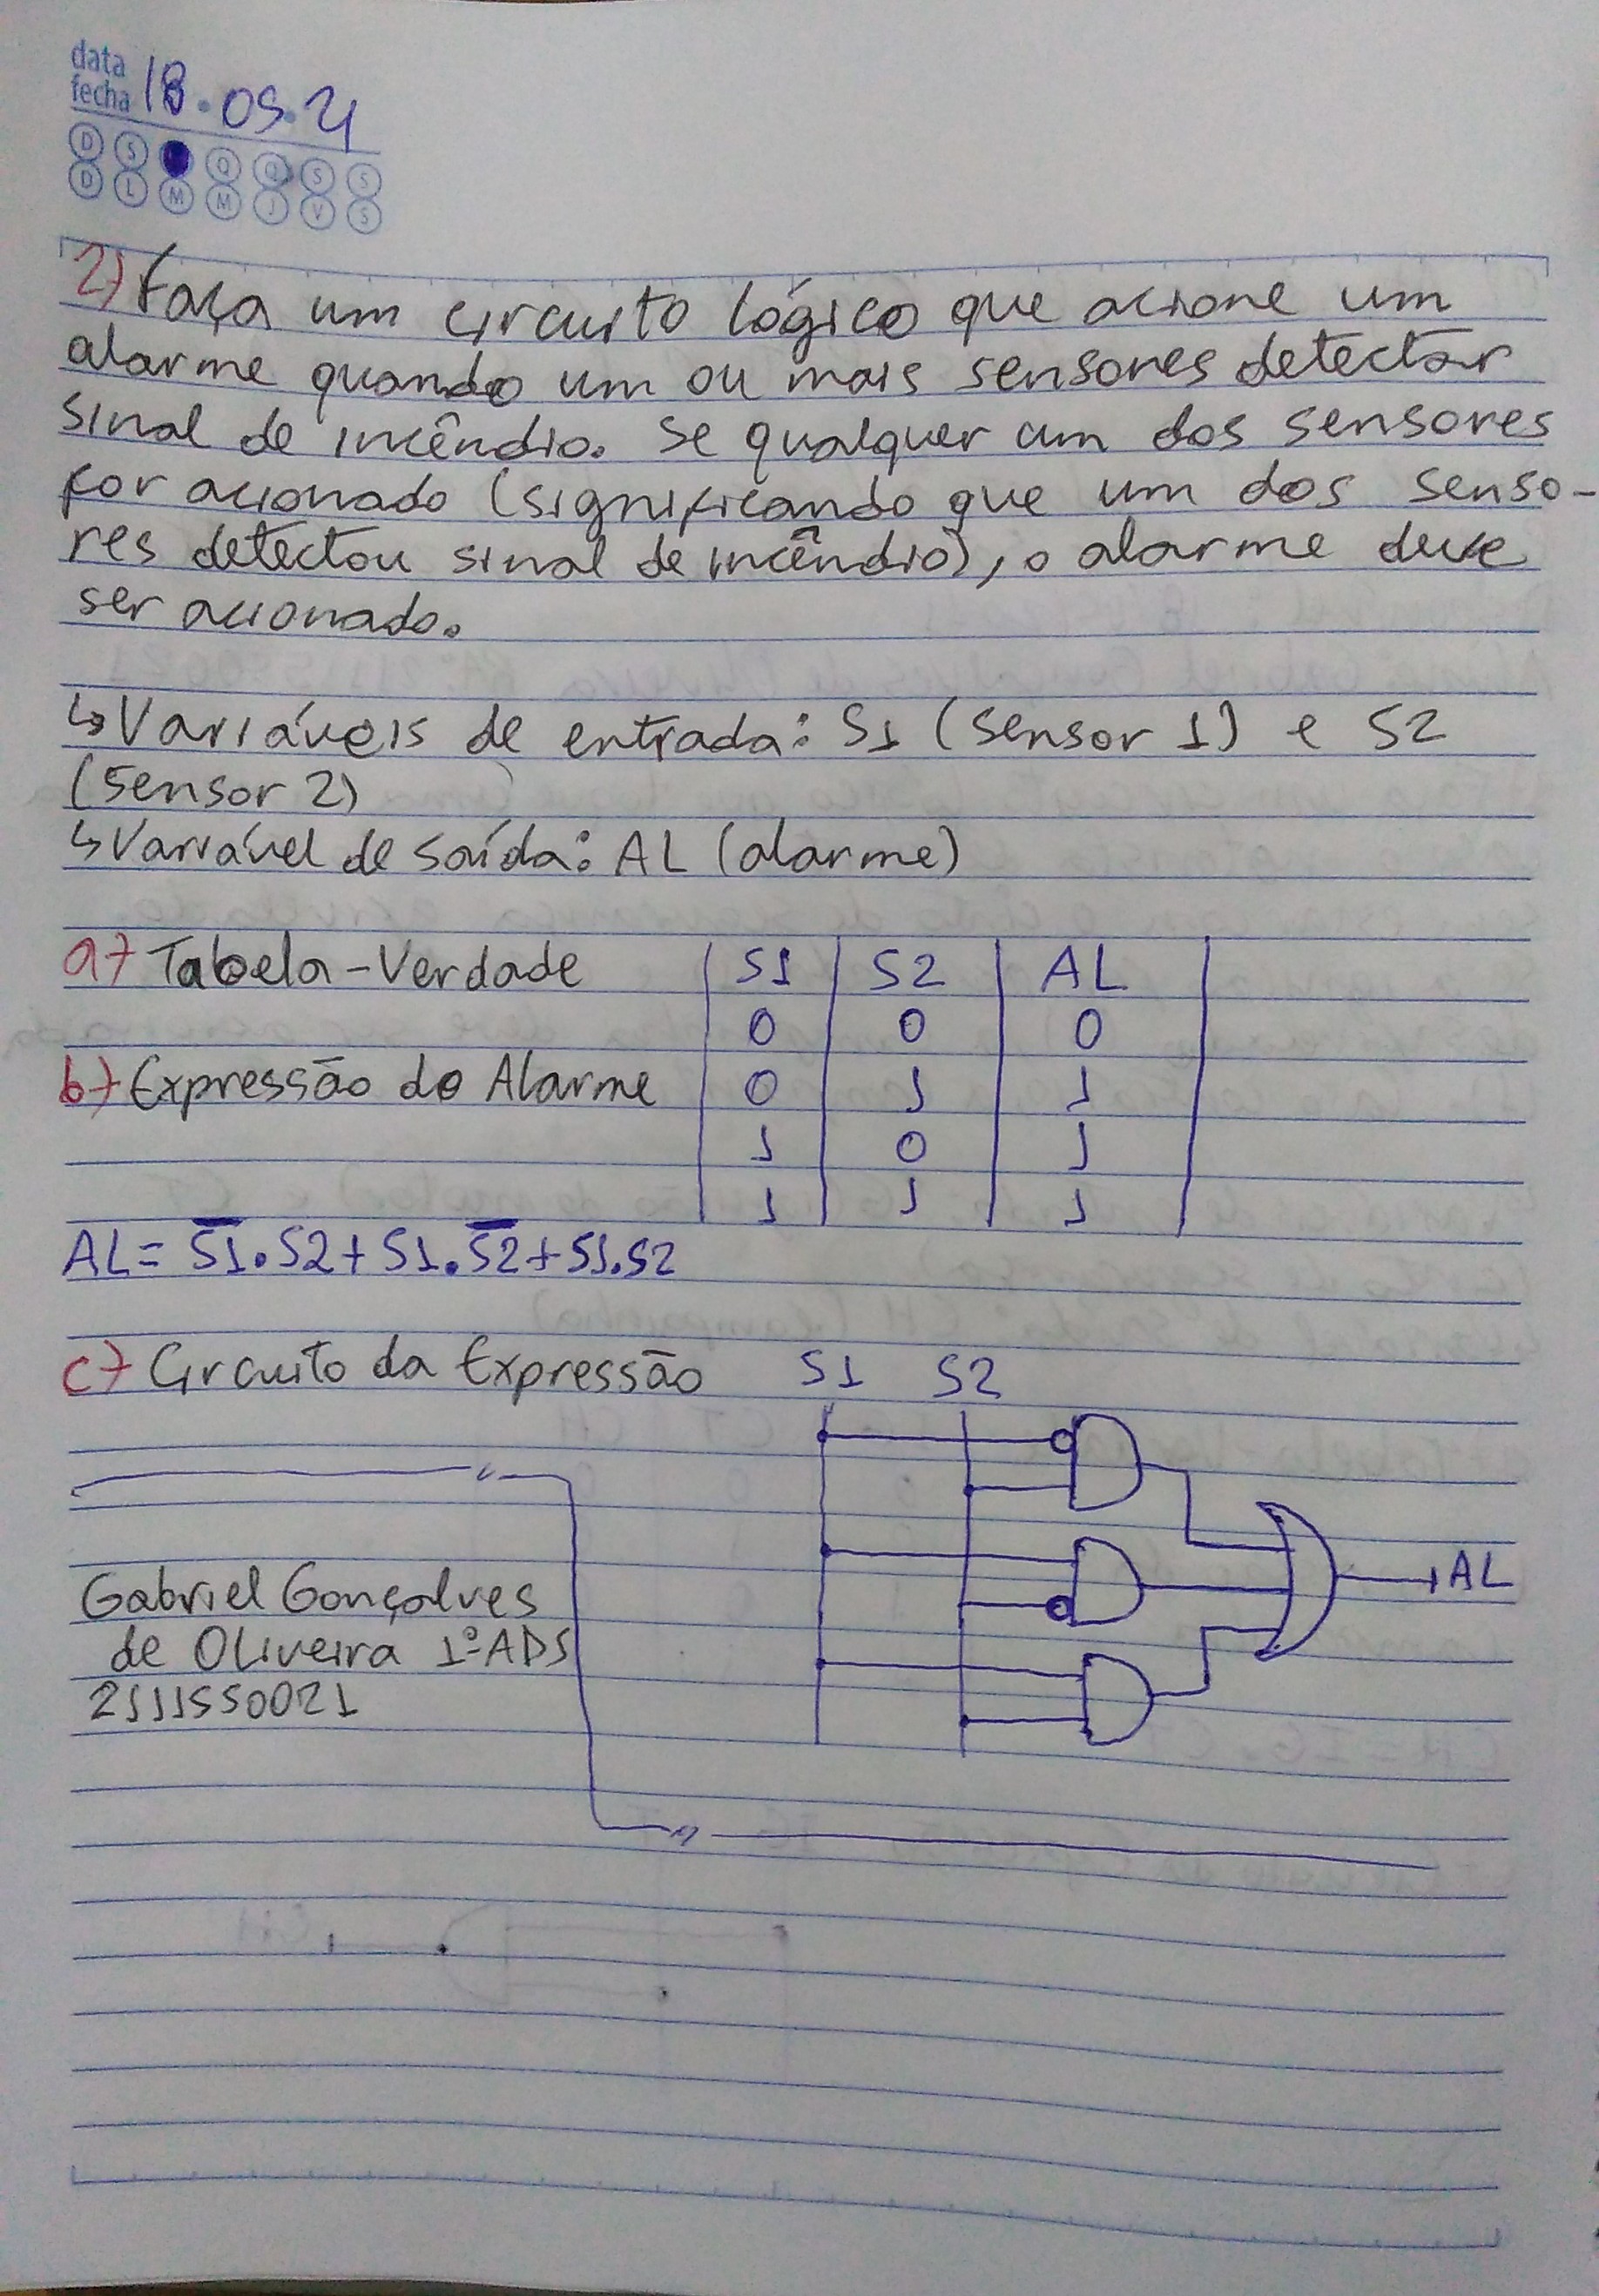 data
fecha 18.05.21
D S Q Q S S
D L M M J V S
2) Faça um circuito lógico que acione um
alarme quando um ou mais sensores detectar
sinal de incêndio. Se qualquer um dos sensores
for acionado (significando que um dos senso-
res detectou sinal de incêndio), o alarme deve
ser acionado.
↳ Variáveis de entrada: S1 (sensor 1) e S2
(sensor 2)
↳ Variável de saída: AL (alarme)
a) Tabela-Verdade
S1 S2 AL
0 0 0
b) Expressão do Alarme
0 1 1
1 0 1
1 1 1
AL = S̅1̅.S2 + S1.S̅2̅ + S1.S2
c) Circuito da Expressão
S1 S2
AL
Gabriel Gonçalves
de Oliveira 1º ADS
2111550021